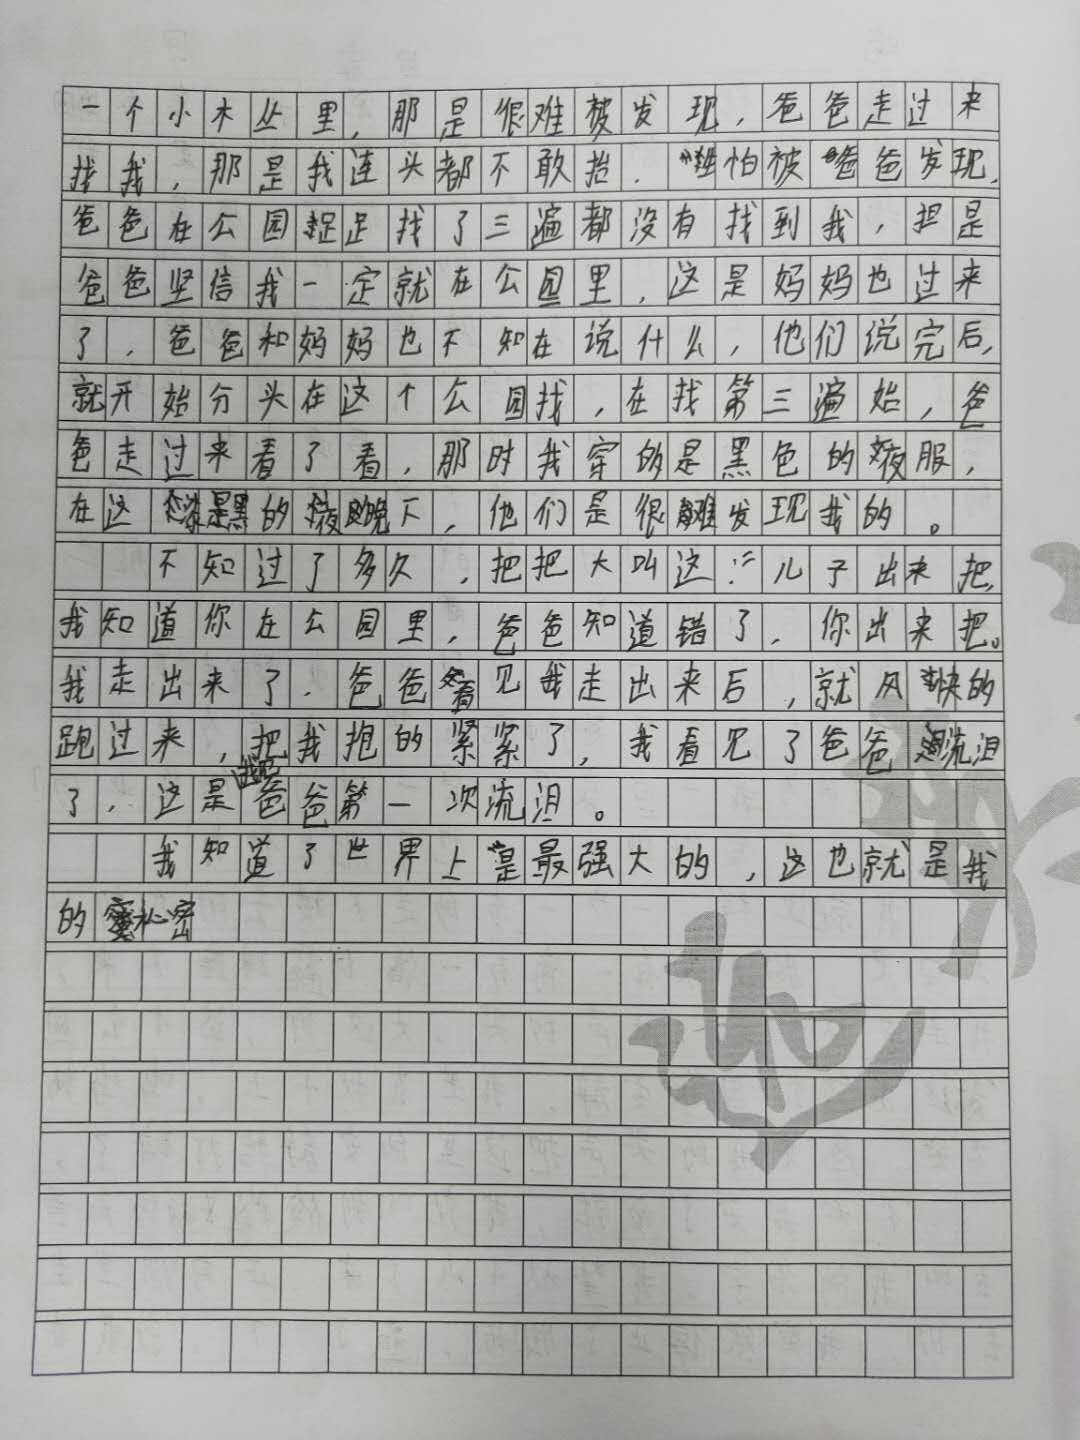 一个小木丛里，那是很难被发现，爸爸走过来
找我，那是我连头都不敢抬．怕被爸爸发现，
爸爸在公园足足找了三遍都没有找到我，担是
爸爸坚信我一定就在公园里，这是妈妈也过来
了，爸爸和妈妈也不知在说什么，他们说完后，
就开始分头在这个公园找，在找第三遍始，爸
爸走过来看了看，那时我穿的是黑色的衣服，
在这漆黑的夜晚下，他们是很难发现我的。
不知过了多久，把把大叫这：“儿子出来把，
我知道你在公园里，爸爸知道错了，你出来把。
我走出来了．爸爸看见我走出来后，就风快的
跑过来，把我抱的紧紧了，我看见了爸爸流泪
了，这是我把爸爸第一次流泪。
我知道了世界上是最强大的，这也就是我
的秘密